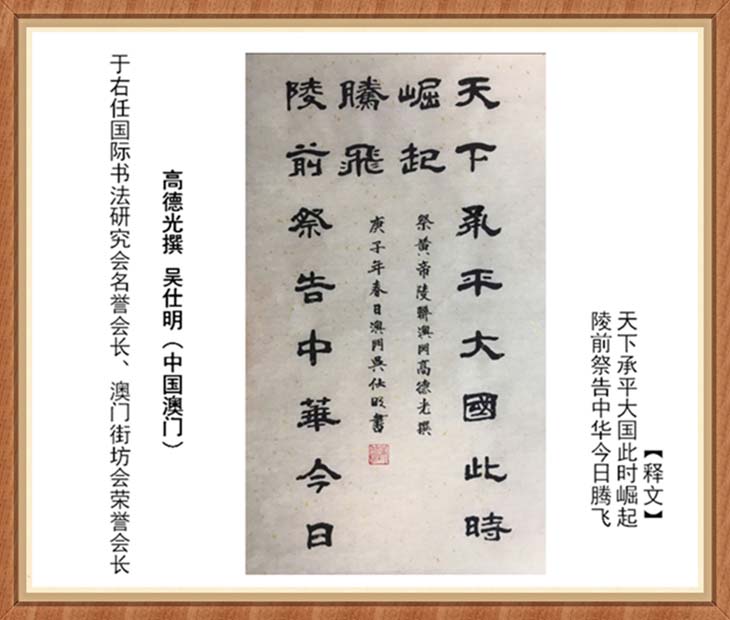 【释文】
天下承平大国此时崛起
陵前祭告中华今日腾飞
天下承平大國此時
崛起
祭黄帝陵聯澳门高德光撰
騰飛
庚子年春日澳门吴仕明書
陵前祭告中華今日
高德光撰 吴仕明（中国澳门）
于右任国际书法研究会名誉会长、澳门街坊会荣誉会长